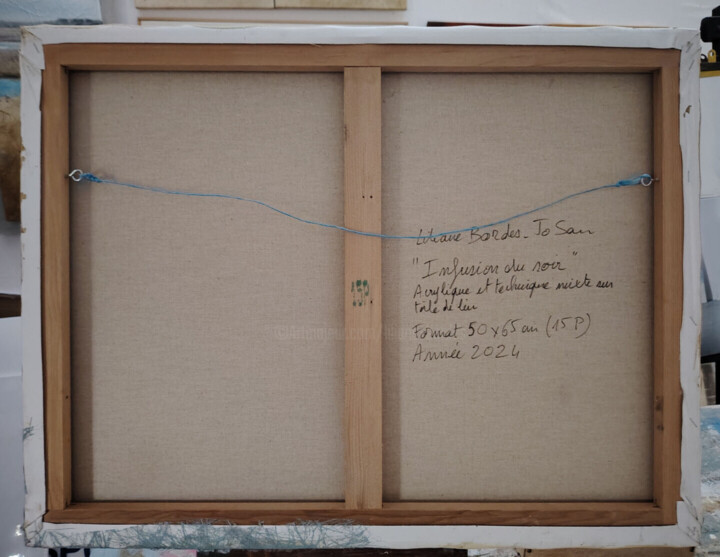 Liliane Bordes - Jo San
"Infusion du soir"
Acrylique et technique mixte sur
toile de lin
Format 50 x 65 cm (15 P)
Année 2024
15P.